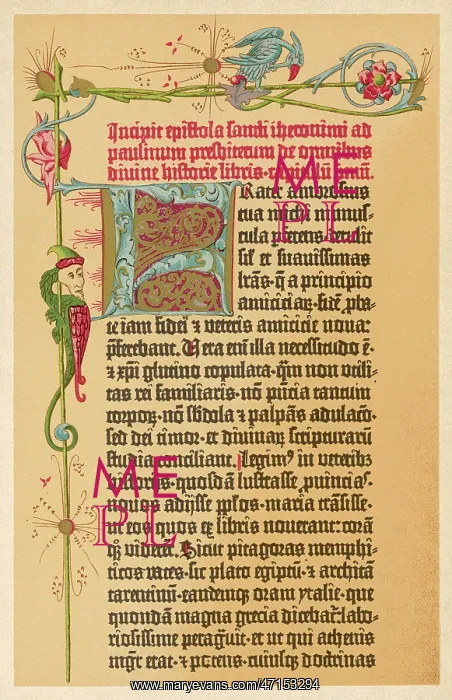 Incipit epistola sancti iheronimi ad
paulinum presbiterum de omnibus
divine historie libris·capitulū pmū.
FRater ambrosius
tua michi munus-
cula perferens·detulit
sil' et suavissimas
lrās·q̄ a principio
amiciciar·fidē pba-
te iam fidei ⁊ veteris amicicie nova:
pferebant. Vera enī illa necessitudo ē·
⁊ xpī glutino copulata·qm̄ non utili-
tas rei familiaris·nō pn̄cia tantum
corporꝝ·nō sbdola ⁊ palpās adulacō·
sed dei timor·et divinaꝝ scripturarū
studia conciliant. Legim⁹ in veteribꝫ
historiis·quosdā lustrasse puincias·
novos adiisse pplos·maria trāsisse·
ut eos quos ex libris noverant: corā
qꝫ viderēt. Sicut pitagoras memphi-
ticos vates·sic plato egiptū·⁊ architā
tarentinū·eandemqꝫ oram ytalie·que
quondā magna grecia dicebat˜:labo-
riosissime peragᵛit·et ut qui athenis
mgr̄ erat·⁊ potens·cuiusqꝫ doctrinas
ME
PL
ME
PL
www.maryevans.com/47153294